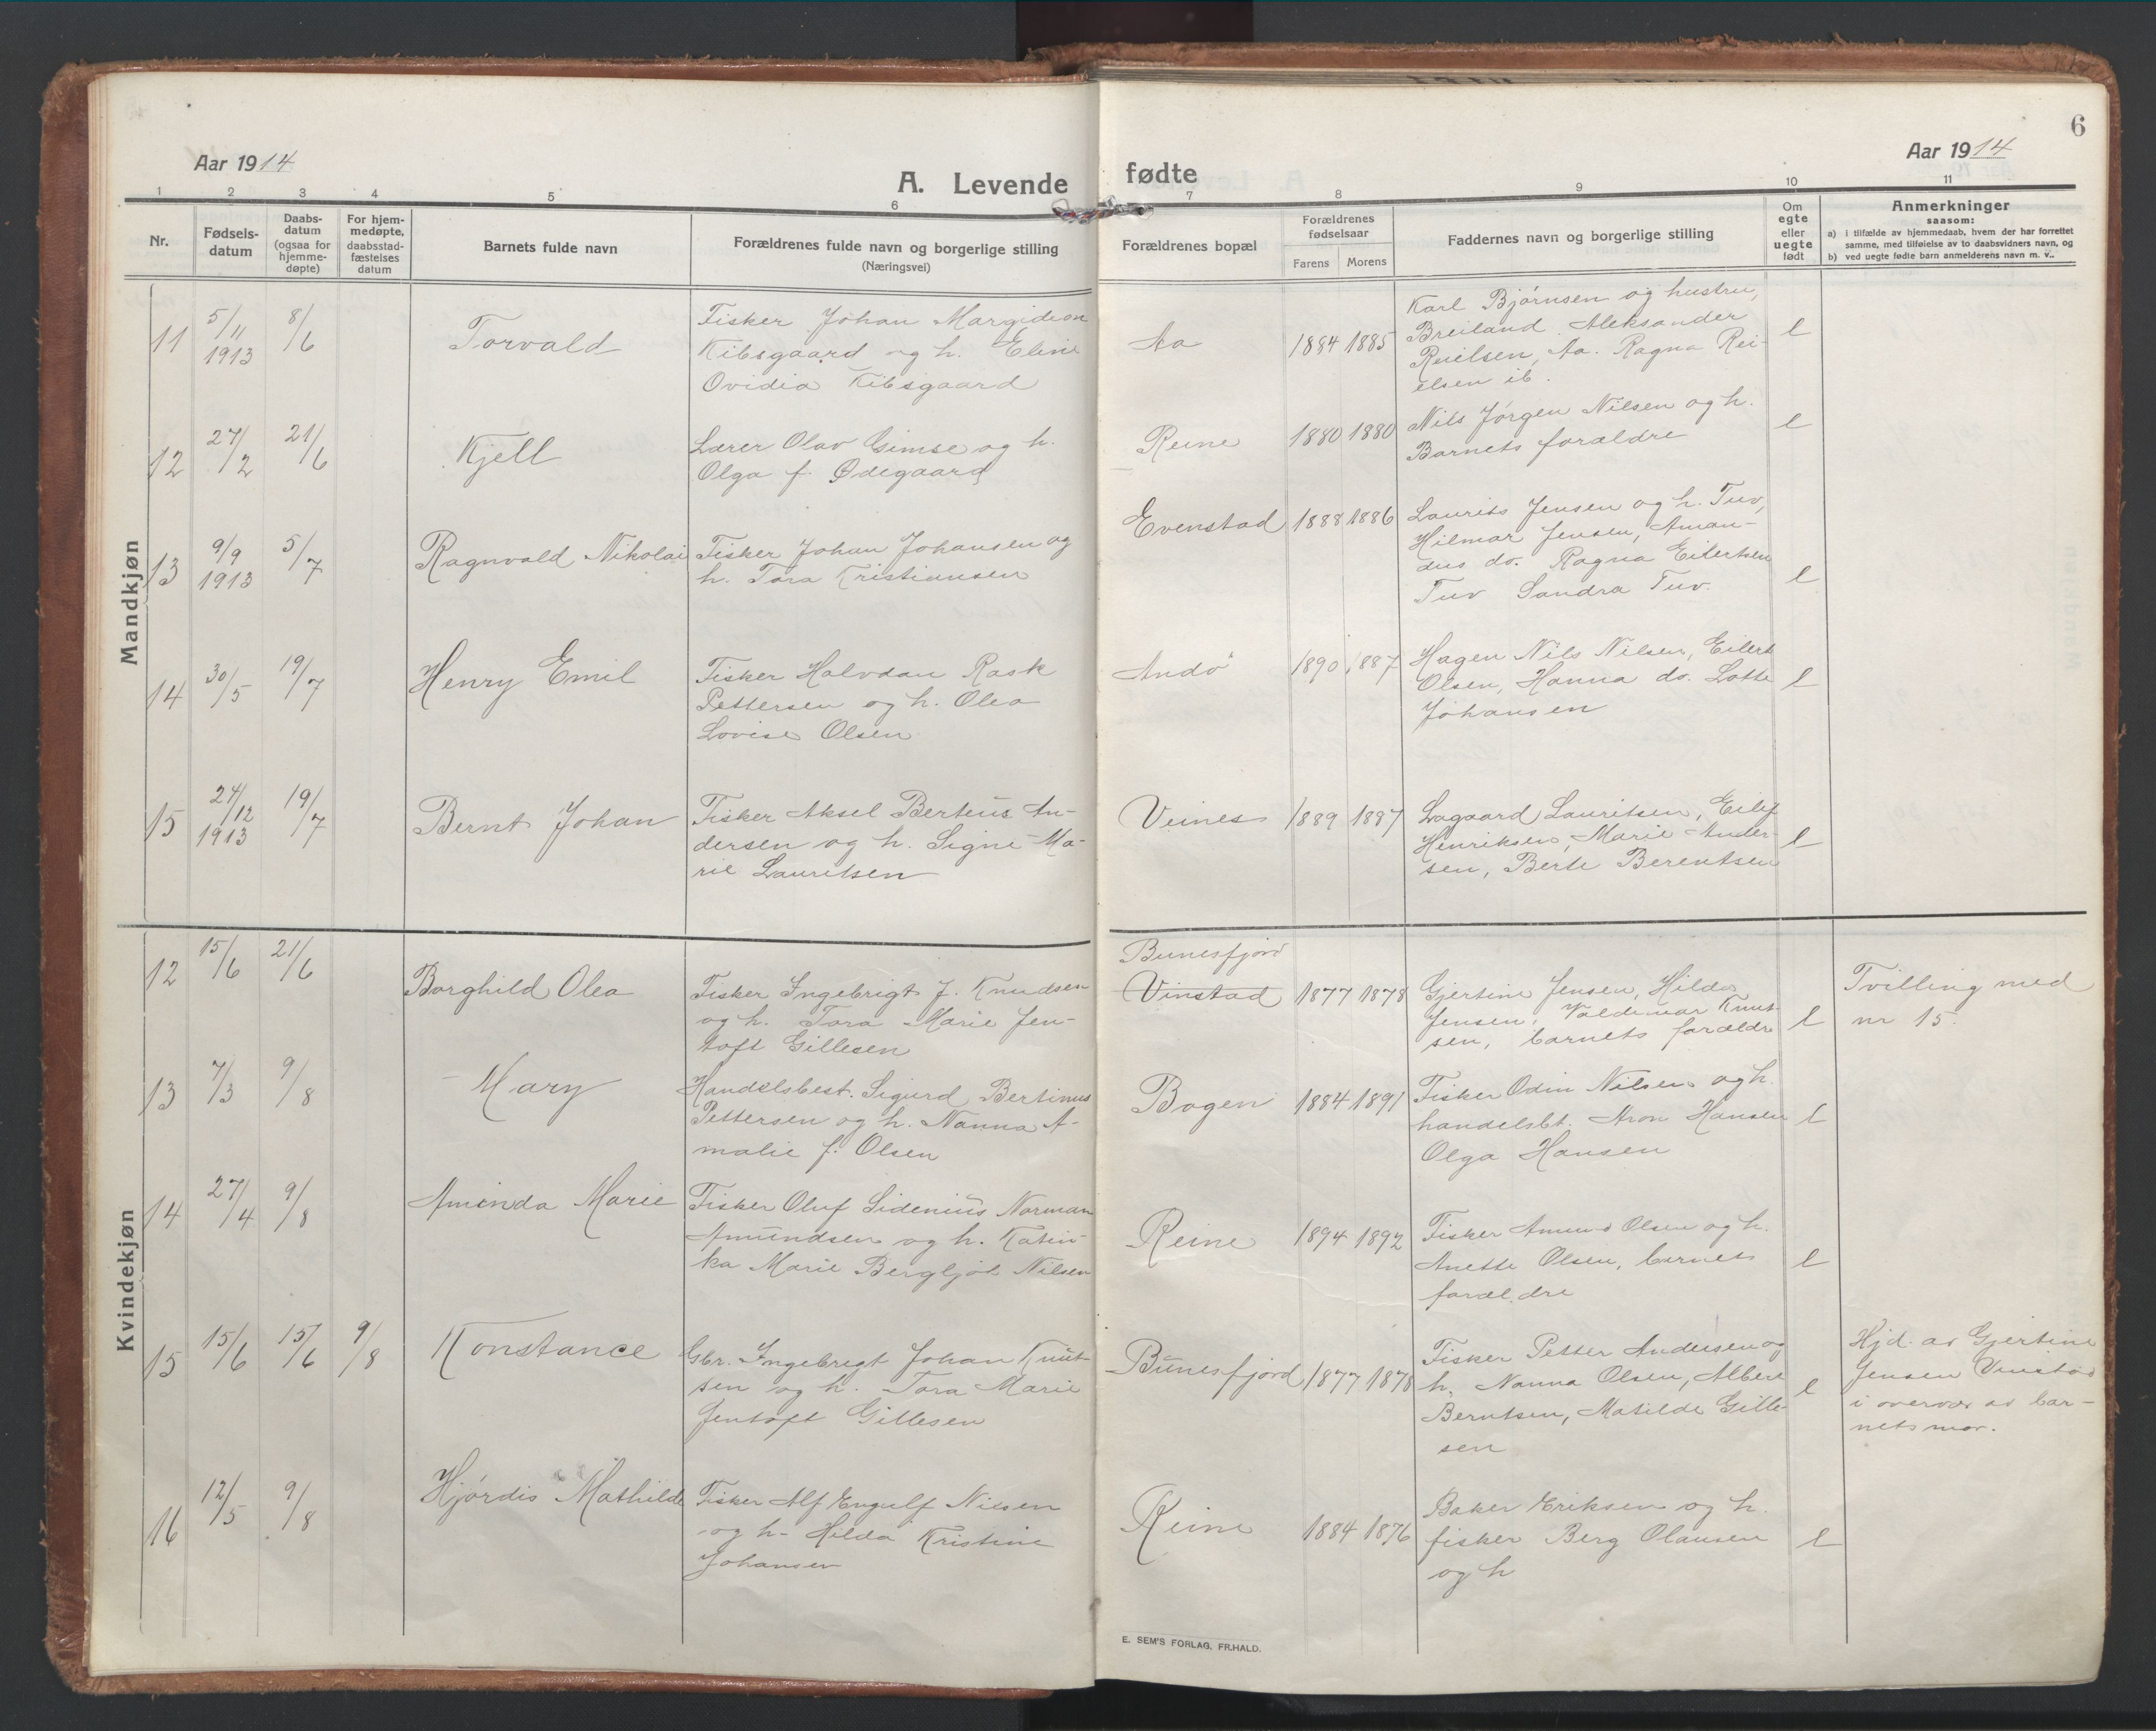 6
Aar 1914
Aar 1914
A. Levende fødte
1 2 3 4 5 6 7 8 9 10 11
Nr.
Fødsels-
datum
Daabs-
datum
(ogsaa for
hjemme-
døpte)
For hjem-
medøpte,
daabsstad-
fæstelses
datum
Barnets fulde navn
Forældrenes fulde navn og borgerlige stilling
(Næringsvei)
Forældrenes bopæl
Forældrenes
fødselsaar
Farens Morens
Faddernes navn og borgerlige stilling
Om
egte
eller
uegte
født
Anmerkninger
saasom:
a) i tilfælde av hjemmedaab, hvem der har forrettet
samme, med tilføielse av to daabsvidners navn, og
b) ved uegte fødte barn anmelderens navn m. v..
Mandkjøn
11
5/11
1913
8/6
Torvald
Fisker Johan Margideon
Kibsgaard og h. Eline
Ovidia Kibsgaard
Aa
1884 1885
Karl Bjørnsen og hustru,
Breiland. Aleksander
Reielsen, Aa. Ragna Rei-
elsen ib.
l
12
27/2
21/6
Kjell
Lærer Olav Gimse og h.
Olga f. Ødegaard
Reine
1880 1880
Nils Jørgen Nilsen og h.
Barnets forældre
l
13
9/9
1913
5/7
Ragnvald Nikolai
Fisker Johan Johansen og
h. Tora Kristiansen
Evenstad
1888 1886
Laurits Jensen og h. Tuv,
Hilmar Jensen, Aman-
dus do. Ragna Eilertsen
Tuv Sandra Tuv.
l
14
30/5
19/7
Henry Emil
Fisker Halvdan Rask
Pettersen og h. Olea
Lovise Olsen
Andø
1890 1887
Hagen Nils Nilsen, Eilert
Olsen, Hanna do. Lotte
Johansen
l
15
24/12
1913
19/7
Bernt Johan
Fisker Aksel Berteus An-
dersen og h. Signe Ma-
rie Lauritsen
Veines
1889 1887
Lagaard Lauritsen, Eilif
Henriksen, Marie Ander-
sen, Berte Berentsen
l
Kvindekjøn
12
15/6
21/6
Borghild Olea
Fisker Ingebrigt J. Knudsen
og h. Tora Marie Jen-
toft Gillesen
Bunesfjord
Vinstad
1877 1878
Gjertine Jensen, Hilda
Jensen, Valdemar Knut-
sen, barnets forældre
l
Tvilling med
nr 15.
13
7/3
9/8
Mary
Handelsbest. Sigurd Bertinus
Pettersen og h. Nanna A-
malie f. Olsen
Bogen
1884 1891
Fisker Odin Nilsen og h.
handelsbt. Aron Hansen
Olga Hansen
l
14
27/4
9/8
Aminda Marie
Fisker Oluf Sidenius Norman
Amundsen og h. Katin-
ka Marie Bergljot Nilsen
Reine
1894 1892
Fisker Amund Olsen og h.
Anette Olsen, barnets
forældre
l
15
15/6
15/6
9/8
Konstance
Gbr. Ingebrigt Johan Knut-
sen og h. Tora Marie
Jentoft Gillesen
Bunesfjord
1877 1878
Fisker Petter Andersen og
h. Nanna Olsen, Albert
Berntsen, Matilde Gille-
sen
l
Hjd. av Gjertine
Jensen Vinstad
i overvær av bar-
nets mor.
16
12/5
9/8
Hjørdis Mathilde
Fisker Alf Engulf Nilsen
og h- Hilda Kristine
Johansen
Reine
1884 1876
Baker Eriksen og h.
fisker Berg Olausen
og h
l
E. SEM'S FORLAG, FR.HALD.